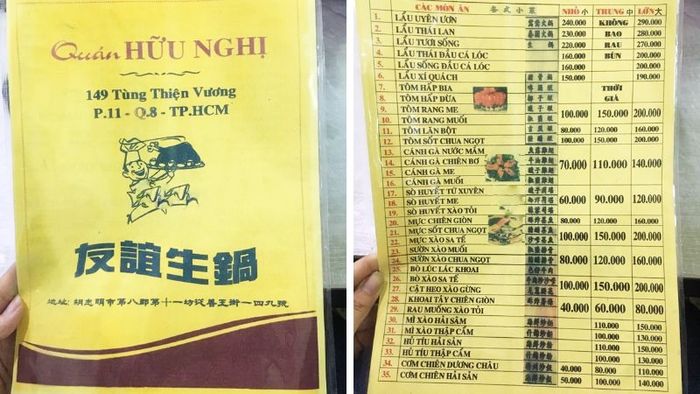 Quán HỮU NGHỊ
149 Tùng Thiện Vương
P.11 - Q.8 - TP.HCM
友誼生鍋
地址: 胡志明市第八郡第十一坊從善王街一四九號
CÁC MÓN ĂN 各式小菜 NHỎ 小 TRUNG 中 LỚN 大
1. LẨU UYÊN ƯƠN 240.000 KHÔNG 290.000
2. LẨU THÁI LAN 230.000 BAO 280.000
3. LẨU TƯƠI SỐNG 220.000 RAU 270.000
4. LẨU THÁI ĐẦU CÁ LÓC 160.000 BÚN 200.000
5. LẨU SỐNG ĐẦU CÁ LÓC 160.000 200.000
6. LẨU XÍ QUÁCH 150.000 190.000
7. TÔM HẤP BIA THỜI
8. TÔM HẤP DỪA GIÁ
9. TÔM RANG ME 100.000 150.000 200.000
10. TÔM RANG MUỐI
11. TÔM LĂN BỘT 80.000 120.000 160.000
12. TÔM SỐT CHUA NGỌT 100.000 150.000 200.000
13. CÁNH GÀ NƯỚC MẮM
14. CÁNH GÀ CHIÊN BƠ 70.000 110.000 140.000
15. CÁNH GÀ ME
16. CÁNH GÀ MUỐI
17. SÒ HUYẾT TỨ XUYÊN
18. SÒ HUYẾT ME 60.000 90.000 120.000
19. SÒ HUYẾT XÀO TỎI
20. MỰC CHIÊN GIÒN 80.000 120.000 160.000
21. MỰC SỐT CHUA NGỌT 100.000 150.000 200.000
22. MỰC XÀO SA TẾ
23. SƯỜN XÀO CHUA NGỌT
24. SƯỜN RAM MUỐI 80.000 120.000 160.000
25. BÒ LÚC LẮC KHOAI
26. BÒ XÀO SA TẾ 100.000 150.000 200.000
27. CẬT HEO XÀO GỪNG
28. KHOAI TÂY CHIÊN GIÒN 40.000 60.000 80.000
29. RAU MUỐNG XÀO TỎI
30. MÌ XÀO HẢI SÂM 110.000 150.000
31. MÌ XÀO THẬP CẨM 100.000 130.000
32. HỦ TÍU HẢI SẢN 110.000 150.000
33. HỦ TÍU THẬP CẨM 100.000 130.000
34. CƠM CHIÊN DƯƠNG CHÂU 40.000 80.000 110.000
35. CƠM CHIÊN HẢI SẢN 50.000 100.000 140.000